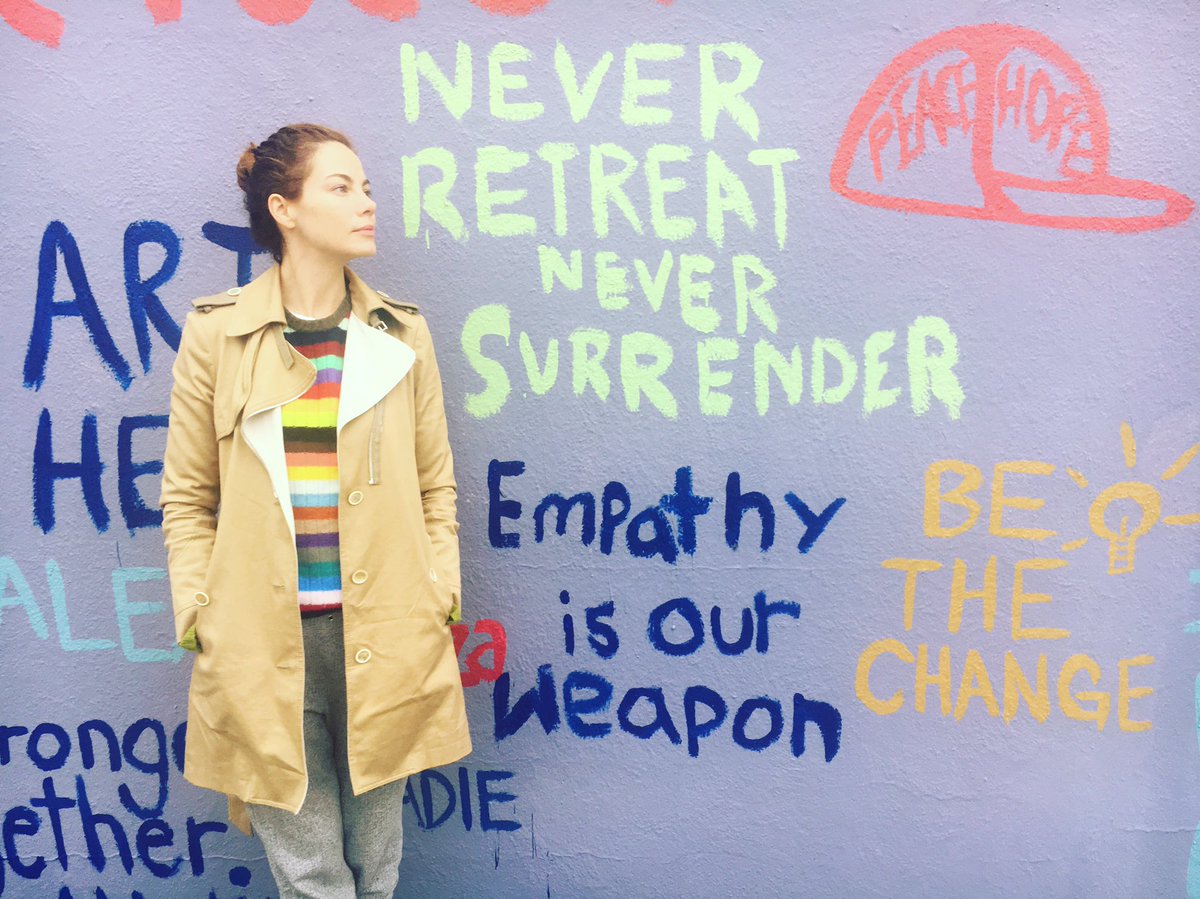 NEVER
RETREAT
NEVER
SURRENDER
PEACE HOPE
ART
HE
ALE
Empathy
is our
Weapon
BE
THE
CHANGE
za
ronge
gether.
ADIE